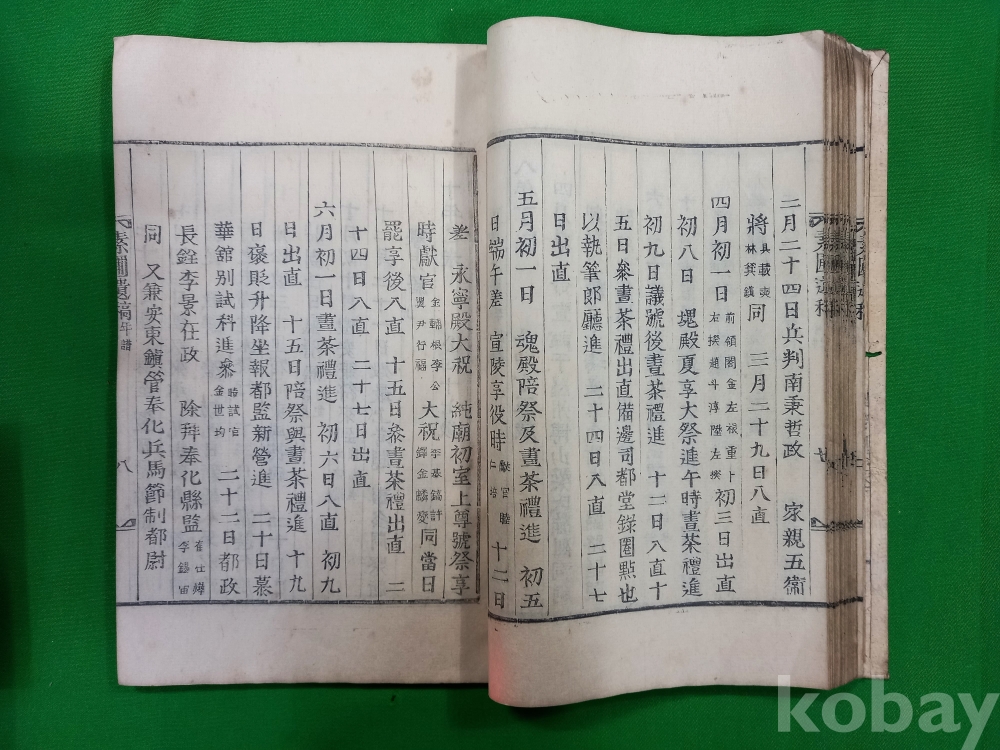 二月二十四日兵判南秉哲政 家親五衛
將 具載奭 林巽鎭 同 三月二十九日入直
四月初一日 前領閤金左根重卜 右揆趙斗淳陞左揆 初三日出直
初八日 魂殿夏享大祭進午時晝茶禮進
初九日議號後晝茶禮進 十二日入直十
五日參晝茶禮出直備邊司都堂錄圈點也
以執筆郎廳進 二十四日入直 二十七
日出直
五月初一日 魂殿陪祭及晝茶禮進 初五
日端午差 宣陵享役時 獻官睦仁培 十二日
差 永寧殿大祝 純廟初室上尊號祭享
時獻官 尹行福 大祝 同當日
罷享後入直 十五日參晝茶禮出直 二
十四日入直 二十七日出直
六月初一日晝茶禮進 初六日入直 初九
日出直 十五日陪祭與晝茶禮進 十九
日褒貶升降坐報都監新營進 二十日慕
華舘別試科進參 金世均 二十二日都政
長銓李景在政 除拜奉化縣監
同 又兼安東鎭管奉化兵馬節制都尉
素圃遺稿 年譜
八
kobay